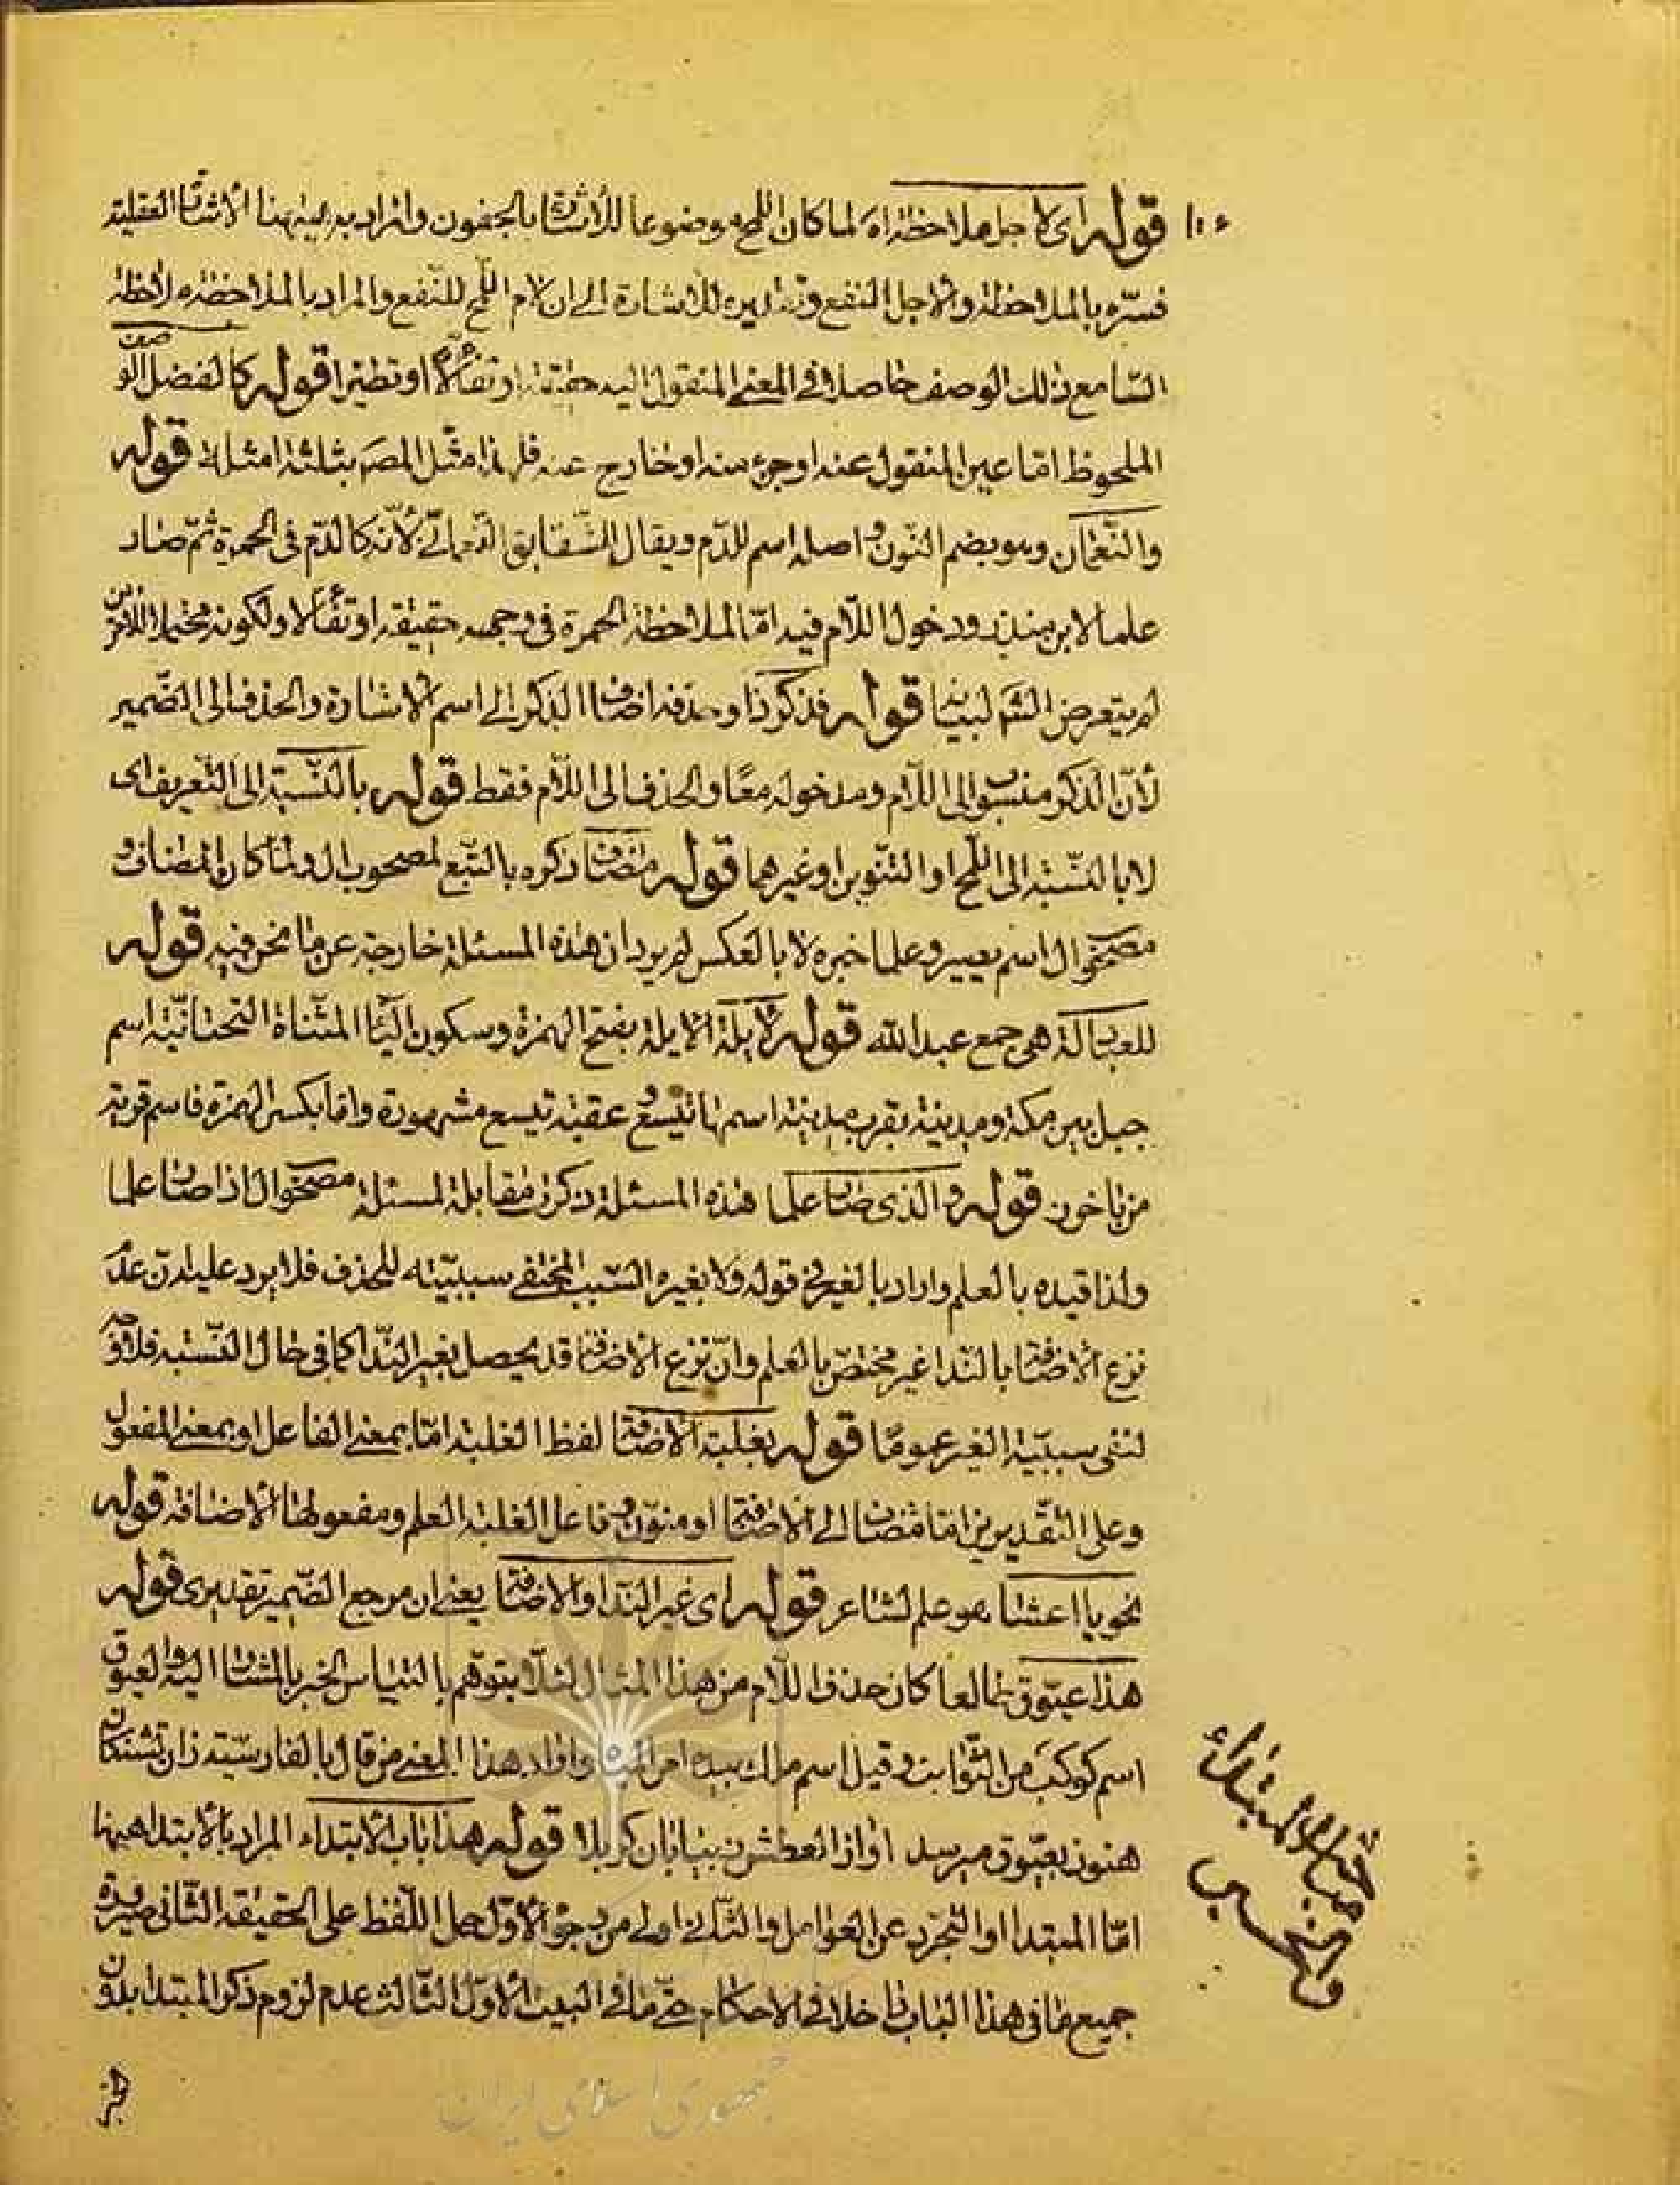 ١٠٤
قوله اى لاجل ملاحظة اه لما كان اللمح موضوعا للاشارة بالجفون واراد به ههنا الاشارة العقلية
فسّره بالملاحظة ولاجل النفع للاشارة الى ان لام اللّمح للنّفع والمراد بالملاحظة ملاحظة
السّامع ذلك الوصف حاصلا فى المعنى المنقول اليه حقيقة او تفأّلا او تطيّرا قوله كالفضل الوصف
الملحوظ امّا عين المنقول عنه او جزء منه او خارج عنه فلهذا مثّل المصَ بثلثة امثلة قوله
والنّعمان وهو بضم النّون و اصله اسم للدّم ويقال الشّقايق النّعمانى لانّه كالدّم فى الحمرة ثمّ صار
علما لابن منذر ودخول اللّام فيه امّا لملاحظة الحمرة فى وجهه حقيقة او تفأّلا ولكونه محتملا للامرين
لم يتعرض الشَ لبيانه قوله فذكر ذا وحذفه اضاف الذكر الى اسم الاشارة والحذف الى الضّمير
لانّ الذكر منسوب الى اللّام ومدخوله معًا والحذف الى اللّام فقط قوله بالنّسبة الى التّعريف اى
لا بالنّسبة الى اللّمح او التّنوين او غيرهما قوله مضاف ذكره بالتّبع لمصحوب ال ولمّا كان المضاف و
مصحوب ال اسم يصير وعلما خبره لا بالعكس لم يرد ان هذه المسئلة خارجة عن ما نحن فيه قوله
للعبادلة هى جمع عبد الله قوله لايلة الايلة بفتح الهمزة وسكون اليّاء المثنّاة التّحتانيّة اسم
جبل بين مكّة ومدينة بقرب مدينة اسمها تيسع و عقبة تيسع مشهورة وامّا بكسر الهمزة فاسم قرية
من باخرز قوله و الذى صار علما هذه المسئلة ذكرت مقابلة لمسئلة مصحوب ال اذا صار علما
ولذا قيده بالعلم واراد بالغير فى قوله ولا بغيره السّبب المختفى سببيّته للحذف فلا يرد عليه ان عدم
نزع الاضافة بالنّدا غير مختصّ بالعلم وانّ نزع الاضافة قد يحصل بغير النّدا كما فى حال النّسبة فلا وجه
لنفى سببيّة الغير عمومًا قوله بغلبة الاضافة لفظ الغلبة امّا بمعنى الفاعل او بمعنى المفعول
وعلى التّقديرين امّا مضاف الى الاضافة او منوّن و فاعل الغلبة العلم ومفعولها الاضافة قوله
نحو يا اعشا هو علم لشاعر قوله اى غير النّدا والاضافة يعنى ان مرجع الضّمير تقديرى قوله
هذا عيّوق طالعا كان حذف اللّام من هذا المثال لئلّا يتوهّم بالتباس الخبر بالمشار اليه والعيوق
اسم كوكب من الثّوابت وقيل اسم ملك بيده امر الميا واراد هذا المعنى من قال بالفارسيّة زان تشنكان
هنوز بعيّوق ميرسد آواز العطش ز بيابان كربلا قوله هذا باب الابتداء المراد بالابتدا ههنا
امّا المبتدا او التّجرّد عن العوامل والثّانى اولى من وجوه الاوّل حمل اللّفظ على الحقيقة الثّانى صيرورة
جميع ما فى هذا الباب داخلا فى الاحكام حتّى ما فى البيت الاوّل الثّالث عدم لزوم ذكر المبتدا بلا
مباحث المبتداء
والخبر
خبر
جمهورى اسلامى ايران